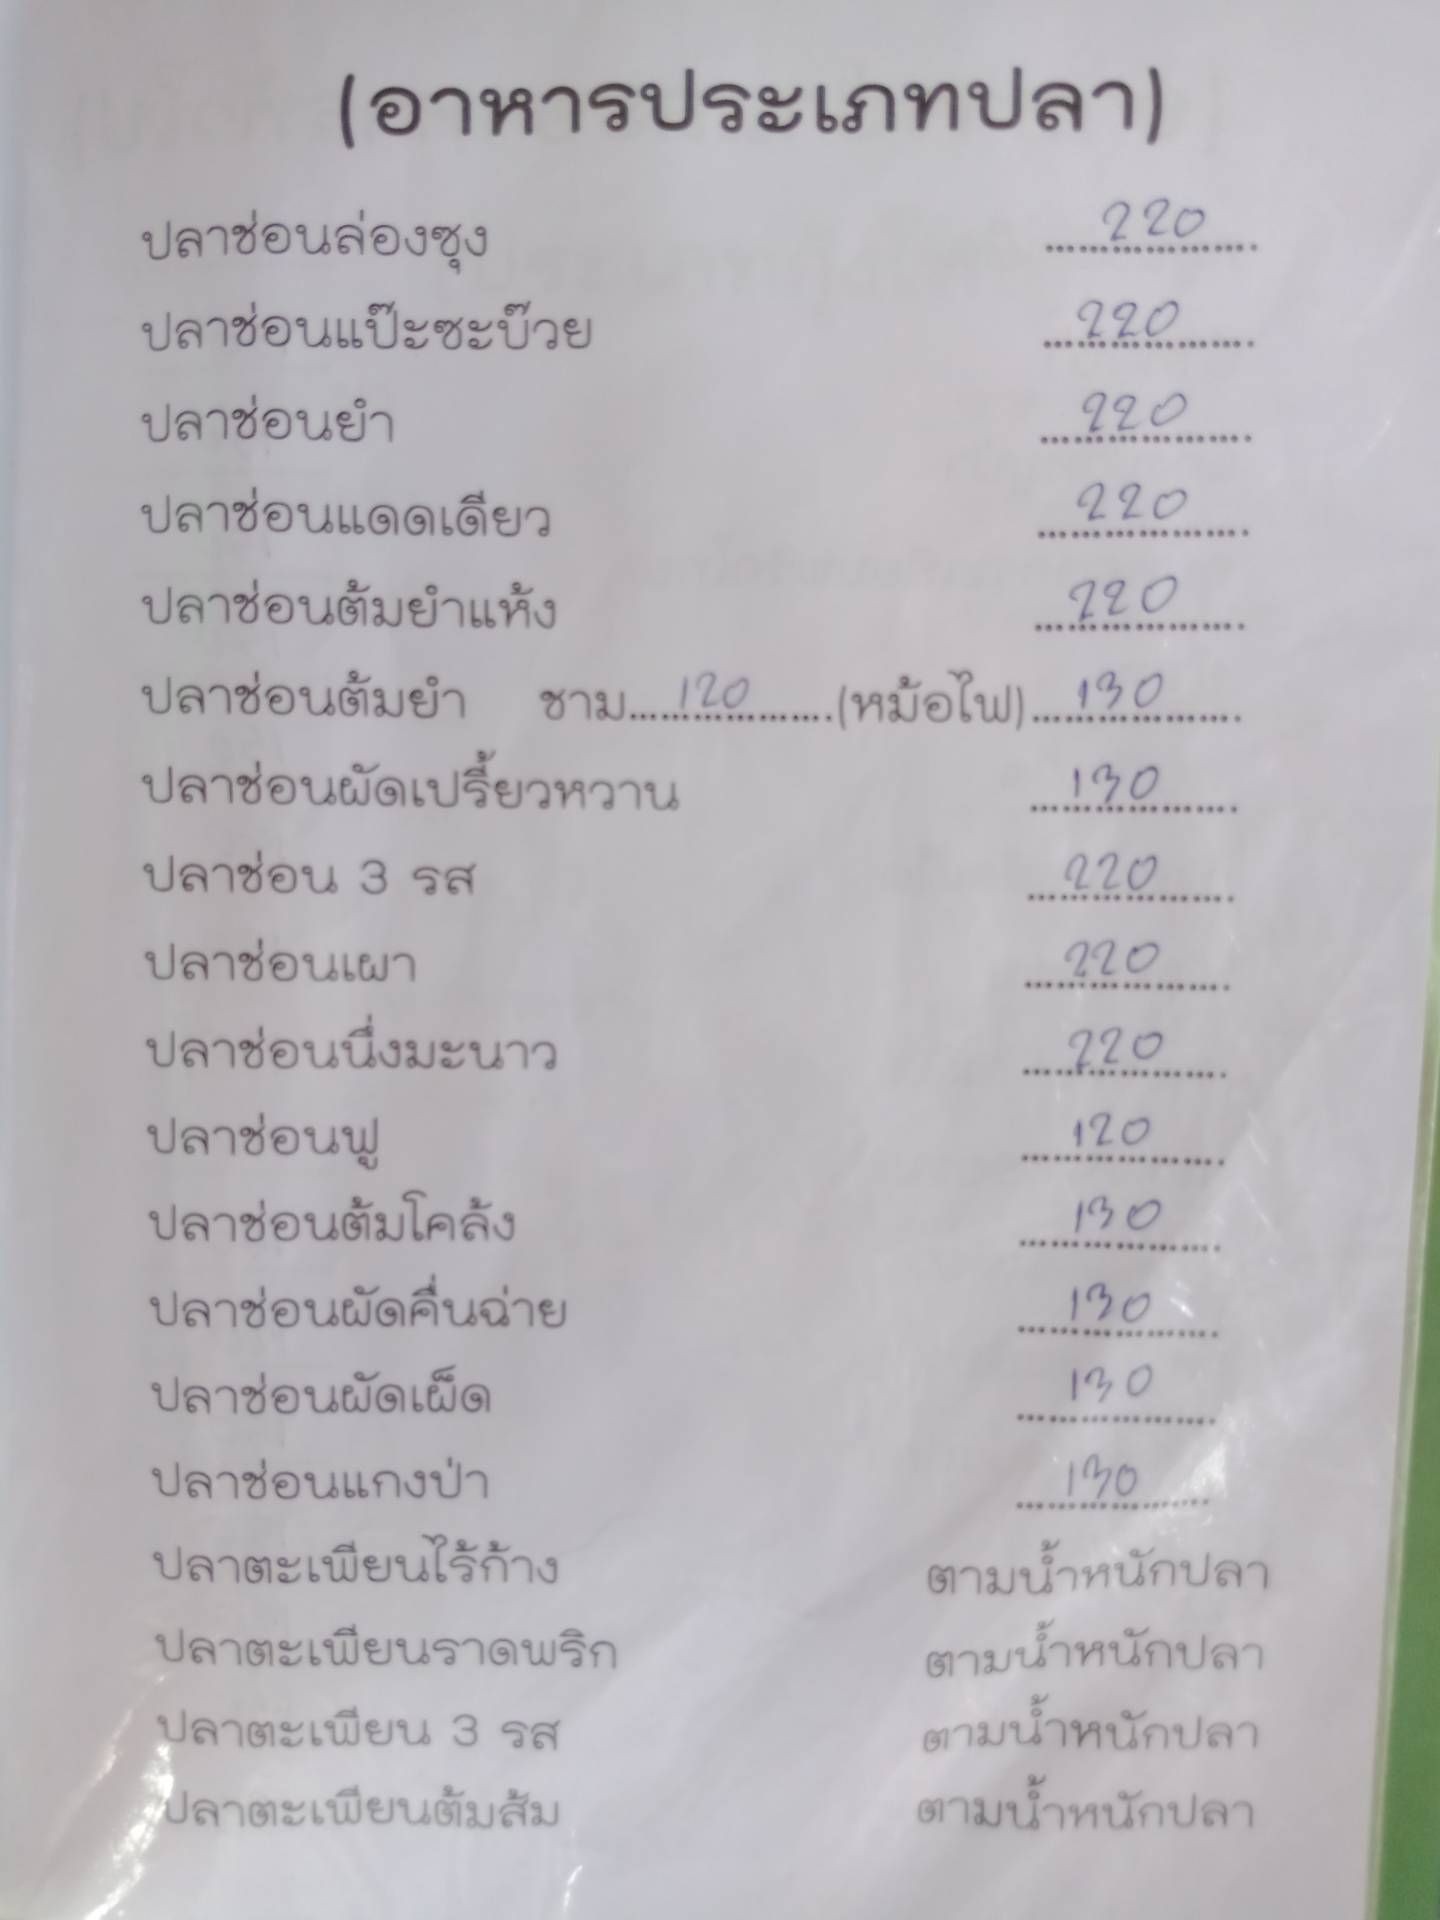 (อาหารประเภทปลา)
ปลาช่อนล่องซุง ....................220
ปลาช่อนแป๊ะซะบ๊วย ....................220
ปลาช่อนยำ ....................220
ปลาช่อนแดดเดียว ....................220
ปลาช่อนต้มยำแห้ง ....................220
ปลาช่อนต้มยำ ชาม....................120 (หม้อไฟ)....................130
ปลาช่อนผัดเปรี้ยวหวาน ....................130
ปลาช่อน 3 รส ....................220
ปลาช่อนเผา ....................220
ปลาช่อนนึ่งมะนาว ....................220
ปลาช่อนฟู ....................120
ปลาช่อนต้มโคล้ง ....................130
ปลาช่อนผัดคื่นฉ่าย ....................130
ปลาช่อนผัดเผ็ด ....................130
ปลาช่อนแกงป่า ....................130
ปลาตะเพียนไร้ก้าง ตามน้ำหนักปลา
ปลาตะเพียนราดพริก ตามน้ำหนักปลา
ปลาตะเพียน 3 รส ตามน้ำหนักปลา
ปลาตะเพียนต้มส้ม ตามน้ำหนักปลา